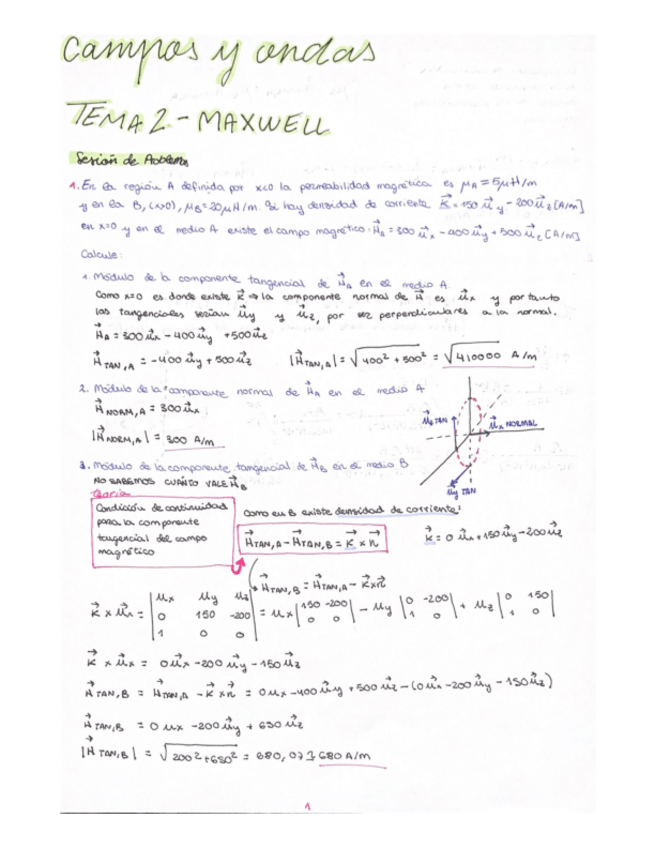 Campos y ondas
TEMA 2 - MAXWELL
Sesión de Problemas
1. En la región A definida por x<0 la permeabilidad magnética es μA = 5μH/m
y en la B, (x>0), μB = 20μH/m. Si hay densidad de corriente K⃗ = 150 u⃗y - 200 u⃗z [A/m]
en x=0 y en el medio A existe el campo magnético: H⃗A = 300 u⃗x - 400 u⃗y + 500 u⃗z [A/m]
Calcule:
1. Módulo de la componente tangencial de H⃗A en el medio A
Como x=0 es donde existe K⃗ ⇒ la componente normal de H⃗ es u⃗x y por tanto
las tangenciales serían u⃗y y u⃗z, por ser perpendiculares a la normal.
H⃗A = 300 u⃗x - 400 u⃗y + 500 u⃗z
H⃗TAN,A = -400 u⃗y + 500 u⃗z |H⃗TAN,A| = √400² + 500² = √410000 A/m
2. Módulo de la componente normal de H⃗A en el medio A
H⃗NORM,A = 300 u⃗x
|H⃗NORM,A| = 300 A/m
u⃗z TAN
u⃗x NORMAL
u⃗y TAN
3. Módulo de la componente tangencial de H⃗B en el medio B
NO SABEMOS CUÁNTO VALE H⃗B
teoría
Condición de continuidad
para la componente
tangencial del campo
magnético
Como en B existe densidad de corriente:
H⃗TAN,A - H⃗TAN,B = K⃗ x n⃗
K⃗ = 0 u⃗x + 150 u⃗y - 200 u⃗z
H⃗TAN,B = H⃗TAN,A - K⃗ x n⃗
K⃗ x u⃗x = |ux uy uz; 0 150 -200; 1 0 0| = ux |150 -200; 0 0| - uy |0 -200; 1 0| + uz |0 150; 1 0|
K⃗ x u⃗x = 0 u⃗x - 200 u⃗y - 150 u⃗z
H⃗TAN,B = H⃗TAN,A - K⃗ x n⃗ = 0 ux - 400 u⃗y + 500 u⃗z - (0 u⃗x - 200 u⃗y - 150 u⃗z)
H⃗TAN,B = 0 ux - 200 u⃗y + 650 u⃗z
|H⃗TAN,B| = √200² + 650² = 680,07 ≃ 680 A/m
1